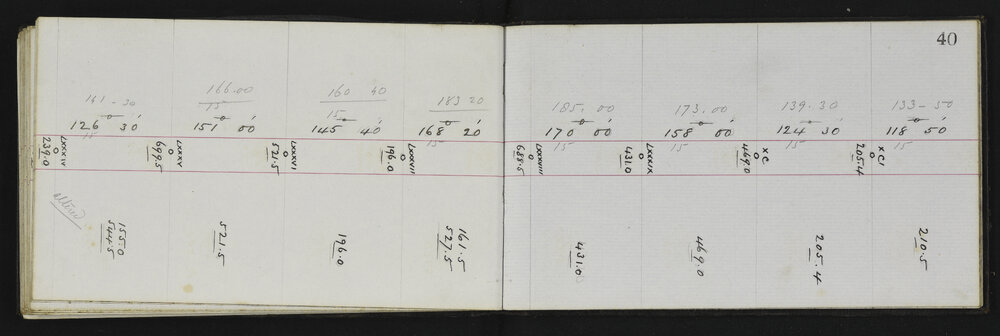 40
141 - 30
166.00
160 40
183 20
185. 00
173. 00
139. 30
133 - 50
15
15
126° 30'
151° 00'
145° 40'
168° 20'
170° 00'
158° 00'
124° 30'
118° 50'
15
15
15
15
15
15
LXXXIV
239.0
LXXXV
699.5
LXXXVI
521.5
LXXXVII
196.0
LXXXVIII
688.5
LXXXIX
431.0
XC
469.0
XCI
205.4
altered
155.0
544.5
521.5
196.0
161.5
527.5
431.0
469.0
205.4
210.5